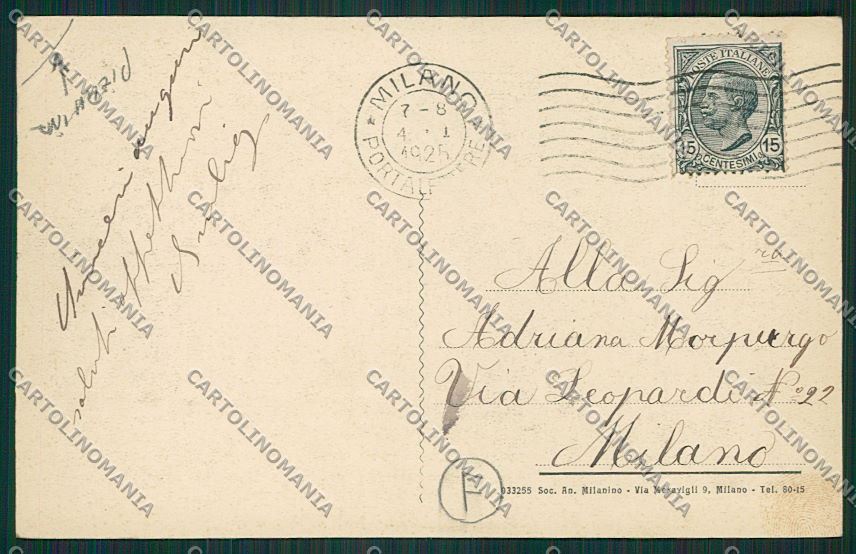 Sinceri auguri
saluti affettuosi
MILANO
7 - 8
4 · 1
1925
PORTA
POSTE ITALIANE
15 CENTESIMI 15
Alla Sig ra
Adriana Morpurgo
Via Leopardi No 22
Milano
033255 Soc. An. Milanino - Via Meravigli 9, Milano - Tel. 80-15
CARTOLINOMANIA